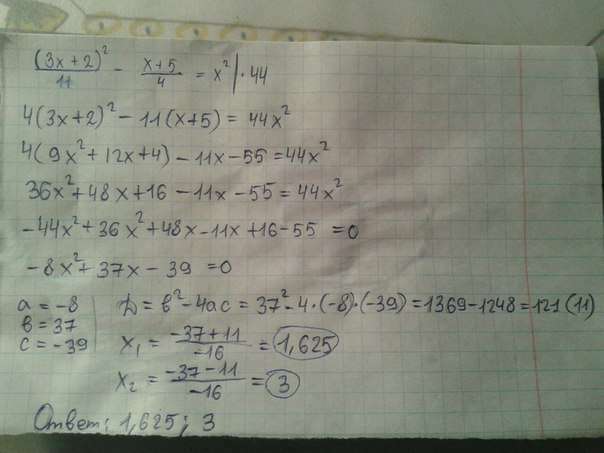 (3x+2)²/11 - x+5/4 = x² | · 44
4(3x+2)² - 11(x+5) = 44x²
4(9x²+12x+4) - 11x - 55 = 44x²
36x²+48x+16 - 11x - 55 = 44x²
-44x²+36x²+48x-11x+16-55 = 0
-8x²+37x-39 = 0
a = -8
в = 37
c = -39
D = в²-4ac = 37²-4·(-8)·(-39) = 1369-1248 = 121 (11)
x₁ = -37+11/-16 = 1,625
x₂ = -37-11/-16 = 3
Ответ: 1,625; 3